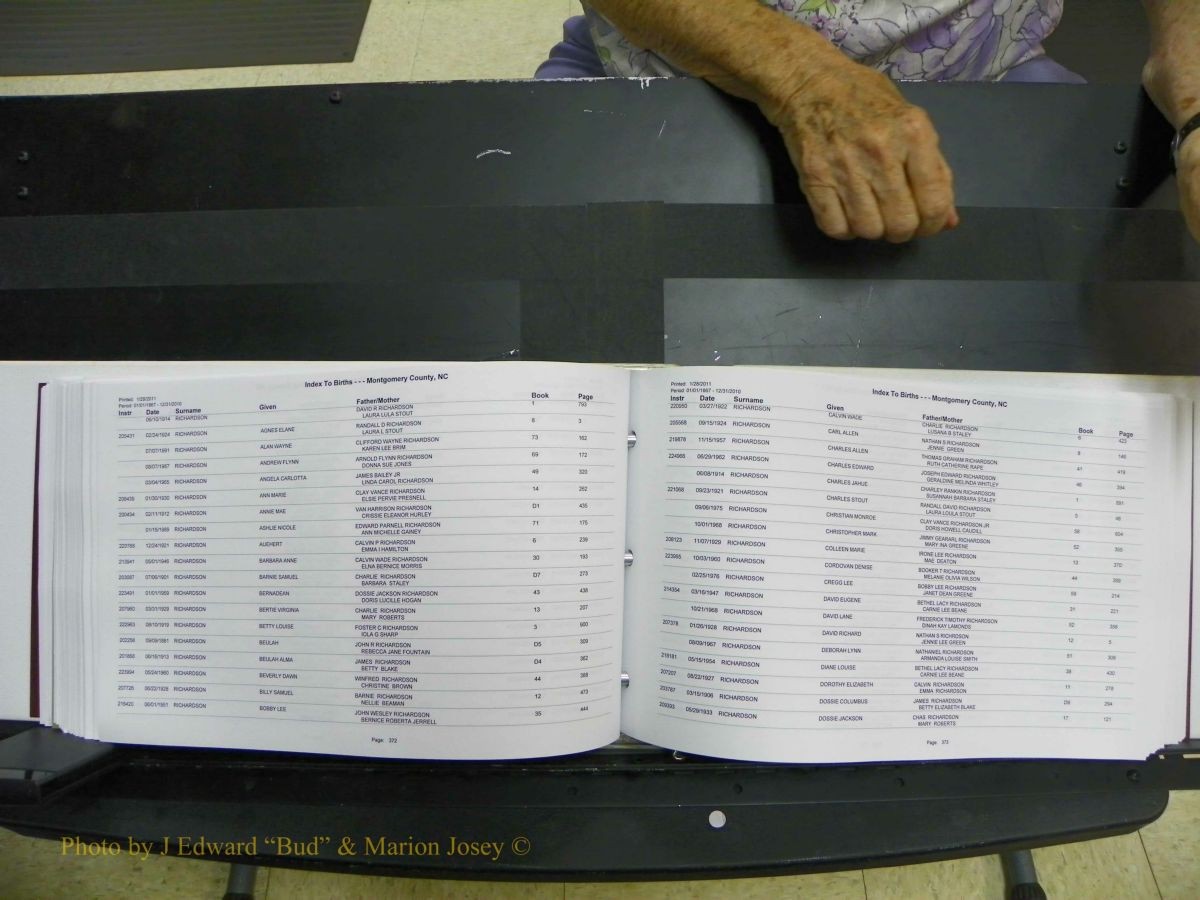 Index To Births - - - Montgomery County, NC
Printed: 1/28/2011
Period: 01/01/1867 - 12/31/2010
Instr Date Surname Given Father/Mother Book Page
06/10/1914 RICHARDSON DAVID R RICHARDSON 1 793
LAURA LULA STOUT
205431 02/24/1924 RICHARDSON AGNES ELANE RANDALL D RICHARDSON 8 3
LAURA L STOUT
07/07/1991 RICHARDSON ALAN WAYNE CLIFFORD WAYNE RICHARDSON 73 162
KAREN LEE BRIM
08/07/1987 RICHARDSON ANDREW FLYNN ARNOLD FLYNN RICHARDSON 69 172
DONNA SUE JONES
03/04/1965 RICHARDSON ANGELA CARLOTTA JAMES BAILEY JR 49 320
LINDA CAROL RICHARDSON
01/30/1930 RICHARDSON ANN MARIE CLAY VANCE RICHARDSON 14 262
ELSIE PERVIE PRESNELL
220434 02/11/1912 RICHARDSON ANNIE MAE VAN HARRISON RICHARDSON D1 435
CRISSIE ELEANOR HURLEY
01/15/1989 RICHARDSON ASHLIE NICOLE EDWARD PARNELL RICHARDSON 71 175
ANN MICHELLE GAINEY
12/24/1921 RICHARDSON AUEHERT CALVIN P RICHARDSON 6 239
EMMA I HAMILTON
05/01/1946 RICHARDSON BARBARA ANNE CALVIN WADE RICHARDSON 30 193
ELNA BERNICE MORRIS
07/06/1901 RICHARDSON BARNIE SAMUEL CHARLIE RICHARDSON D7 273
BARBARA STALEY
223491 01/01/1959 RICHARDSON BERNADEAN DOSSIE JACKSON RICHARDSON 43 438
DORIS LUCILLE HOGAN
207960 03/31/1929 RICHARDSON BERTIE VIRGINIA CHARLIE RICHARDSON 13 207
MARY ROBERTS
222963 08/10/1919 RICHARDSON BETTY LOUISE FOSTER C RICHARDSON 3 600
IOLA G SHARP
202256 09/09/1881 RICHARDSON BEULAH JOHN R RICHARDSON D5 309
REBECCA JANE FOUNTAIN
06/16/1913 RICHARDSON BEULAH ALMA JAMES RICHARDSON D4 362
BETTY BLAKE
223994 05/24/1960 RICHARDSON BEVERLY DAWN WINFRED RICHARDSON 44 388
CHRISTINE BROWN
207726 06/22/1928 RICHARDSON BILLY SAMUEL BARNIE RICHARDSON 12 473
NELLIE BEAMAN
218420 06/01/1951 RICHARDSON BOBBY LEE JOHN WESLEY RICHARDSON 35 444
BERNICE ROBERTA JERRELL
Page: 372
Index To Births - - - Montgomery County, NC
Printed: 1/28/2011
Period: 01/01/1867 - 12/31/2010
Instr Date Surname Given Father/Mother Book Page
220950 03/27/1922 RICHARDSON CALVIN WADE CHARLIE RICHARDSON 6 423
LUSANA B STALEY
205568 09/15/1924 RICHARDSON CARL ALLEN NATHAN S RICHARDSON 8 146
JENNIE GREEN
219878 11/15/1957 RICHARDSON CHARLES ALLEN THOMAS GRAHAM RICHARDSON 41 419
RUTH CATHERINE RAPE
224966 06/29/1962 RICHARDSON CHARLES EDWARD JOSEPH EDWARD RICHARDSON 46 394
GERALDINE MELINDA WHITLEY
06/08/1914 RICHARDSON CHARLES JAHUE CHARLEY RANKIN RICHARDSON 1
SUSANNAH BARBARA STALEY
221068 09/23/1921 RICHARDSON CHARLES STOUT RANDALL DAVID RICHARDSON 5 46
LAURA LOULA STOUT
09/06/1975 RICHARDSON CHRISTIAN MONROE CLAY VANCE RICHARDSON JR 58 604
DORIS HOWELL CAUDILL
10/01/1968 RICHARDSON CHRISTOPHER MARK JIMMY GEARARL RICHARDSON 52
MARY INA GREENE
208123 11/07/1929 RICHARDSON COLLEEN MARIE IRONE LEE RICHARDSON 13 370
MAE DEATON
223995 10/03/1960 RICHARDSON CORDOVAN DENISE BOOKER T RICHARDSON 44 389
MELANIE OLIVIA WILSON
02/25/1976 RICHARDSON CREGG LEE BOBBY LEE RICHARDSON 59 214
JANET DEAN GREENE
214354 03/16/1947 RICHARDSON DAVID EUGENE BETHEL LACY RICHARDSON 31 221
CARNIE LEE BEANE
10/21/1968 RICHARDSON DAVID LANE FREDERICK TIMOTHY RICHARDSON 52
DINAH KAY LAMONDS
207378 01/26/1928 RICHARDSON DAVID RICHARD NATHAN S RICHRDSON 12 5
JENNIE LEE GREEN
08/09/1967 RICHARDSON DEBORAH LYNN NATHANIEL RICHARDSON 51
ARMANDA LOUISE SMITH
218181 05/15/1954 RICHARDSON DIANE LOUISE BETHEL LACY RICHARDSON 38 430
CARNIE LEE BEANE
207207 08/22/1927 RICHARDSON DOROTHY ELIZABETH CALVIN RICHARDSON 11 278
EMMA RICHARDSON
203767 03/15/1906 RICHARDSON DOSSIE COLUMBUS JAMES RICHARDSON D8 294
BETTY ELIZABETH BLAKE
209393 05/29/1933 RICHARDSON DOSSIE JACKSON CHAS RICHARDSON 17 121
MARY ROBERTS
Page: 373
Photo by J Edward “Bud” & Marion Josey ©